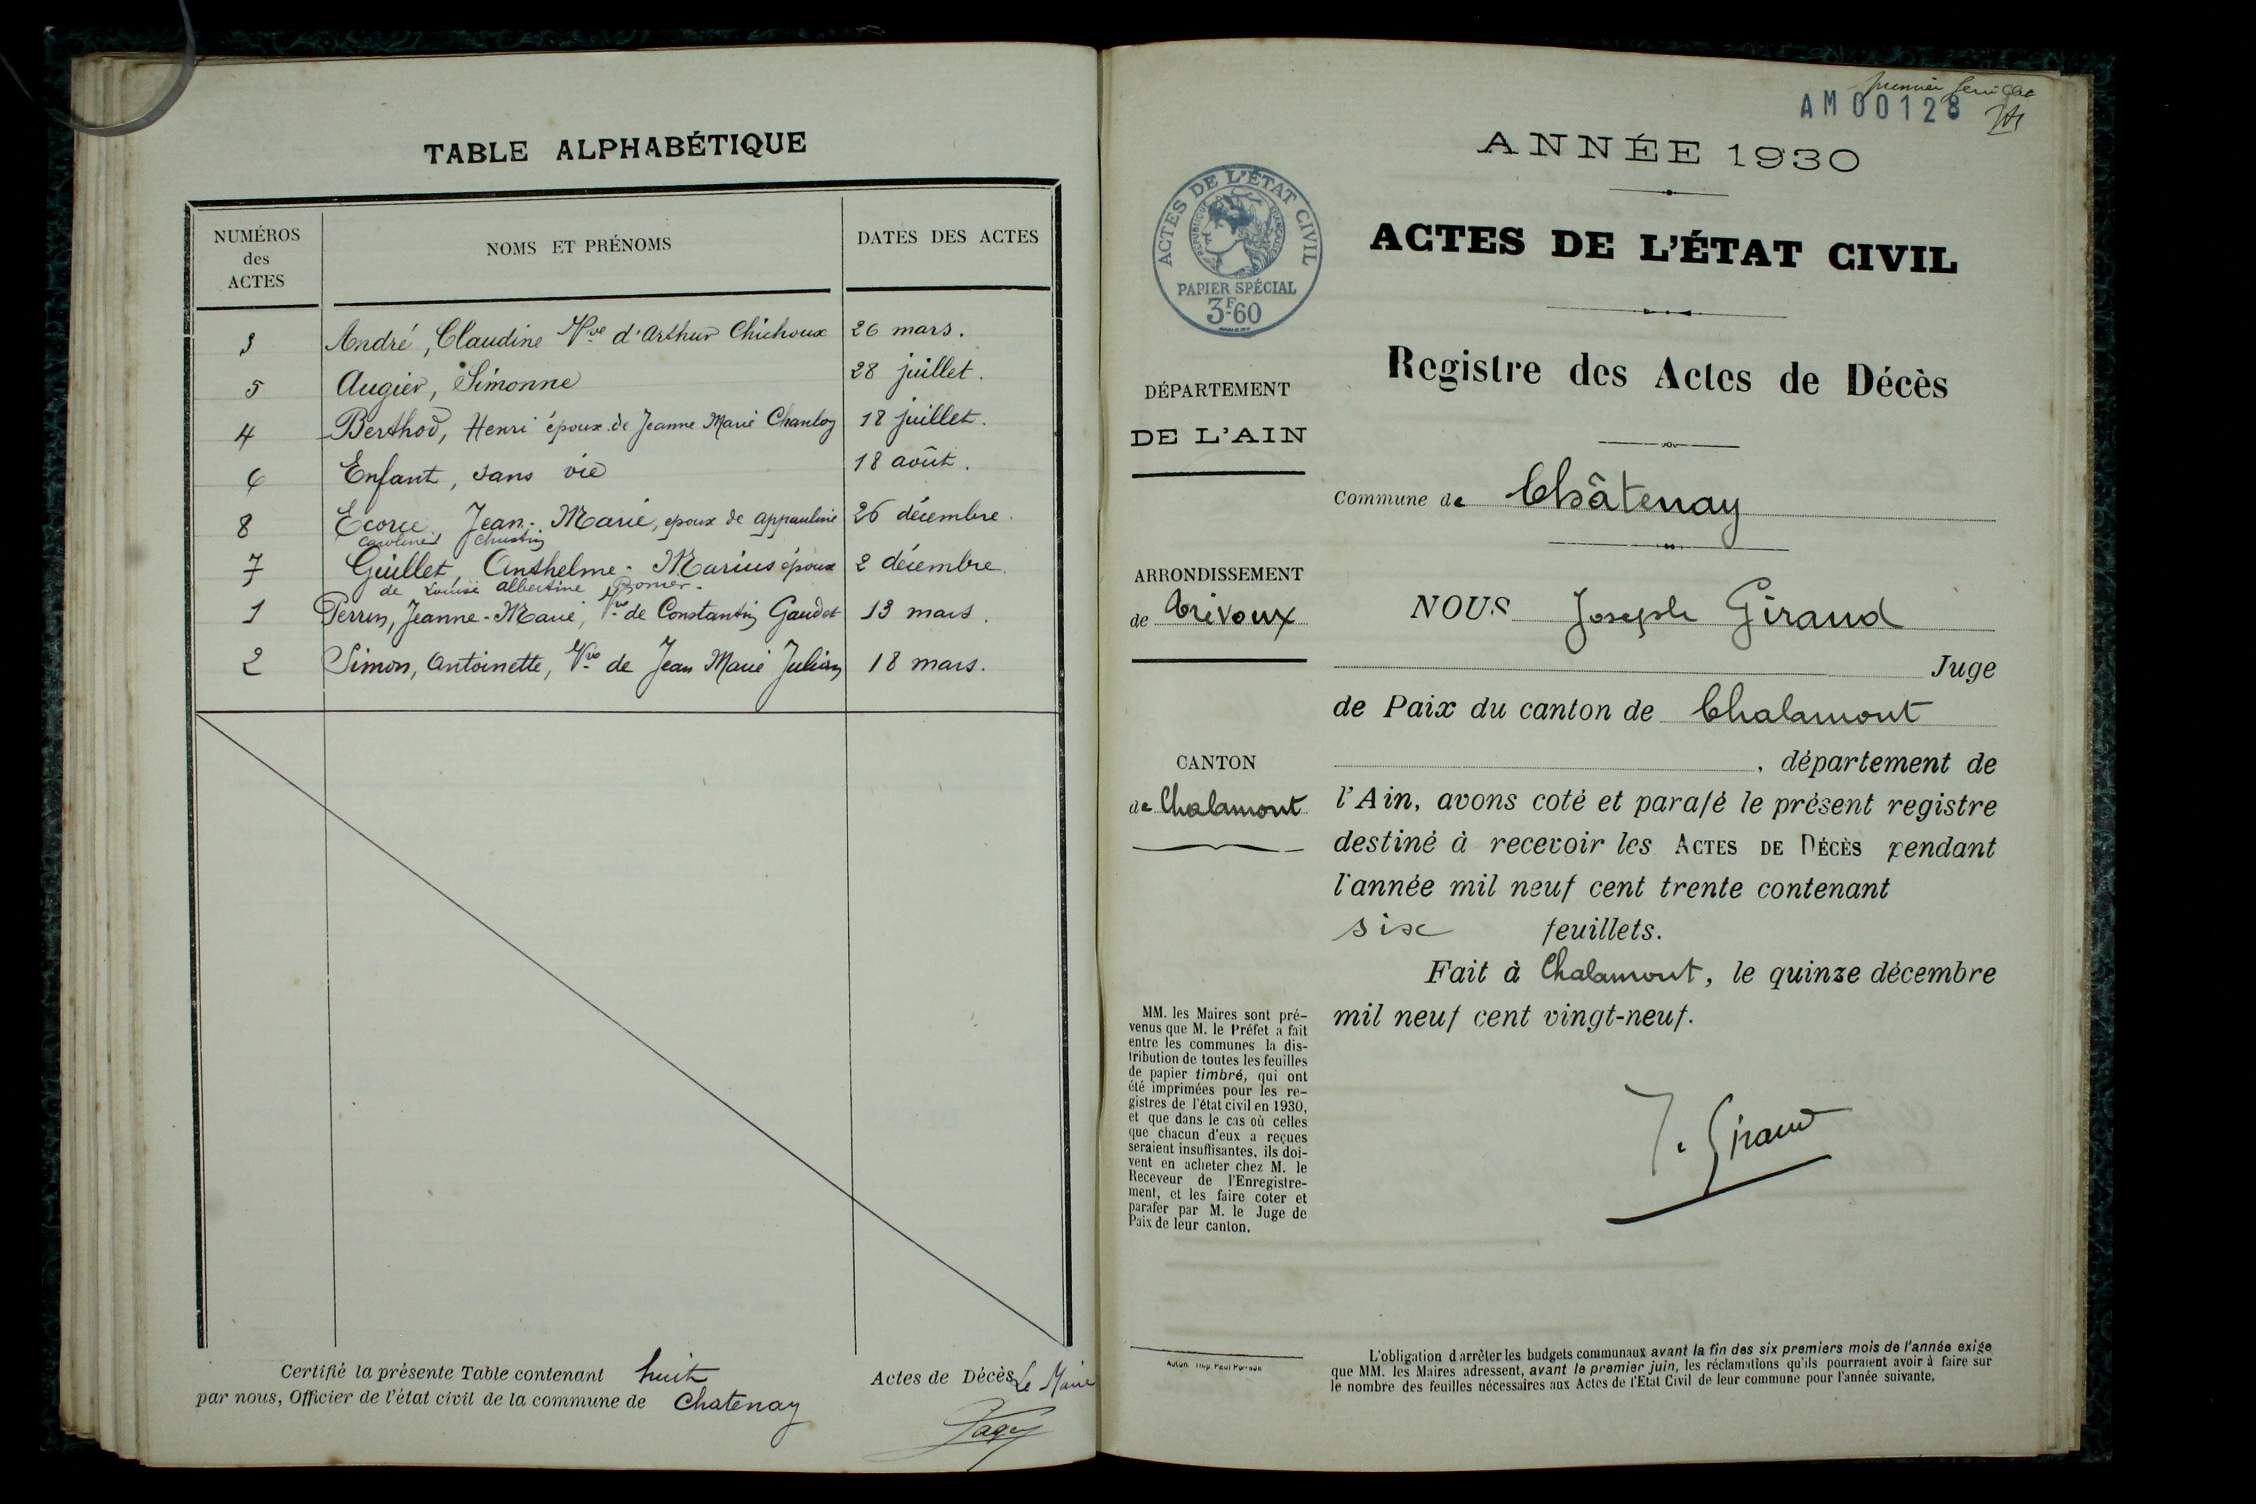 TABLE ALPHABÉTIQUE
NUMÉROS
des
ACTES
NOMS ET PRÉNOMS
DATES DES ACTES
3 André, Claudine Vve d'Arthur Chichoux 26 mars.
5 Augier, Simonne 28 juillet.
4 Berthod, Henri époux de Jeanne Marie 18 juillet.
6 Enfant, sans vie 18 août.
8 Ecorce Jean-Marie, epoux de appauline 26 décembre.
Caroline
7 Guillet Anthelme-Marius époux 2 décembre.
de Louise Albertine
1 Perrin, Jeanne-Marie, Vve de Constantin Gaudet 13 mars.
2 Simon, Antoinette, Vve de Jean Marie Julian 18 mars.
Certifié la présente Table contenant huit Actes de Décès Le Maire
par nous, Officier de l'état civil de la commune de Chatenay
premier feuillet
AM00128
ANNÉE 1930
ACTES DE L'ÉTAT CIVIL
RÉPUBLIQUE FRANÇAISE
PAPIER SPÉCIAL
3F60
ACTES DE L'ÉTAT CIVIL
Registre des Actes de Décès
DÉPARTEMENT
DE L'AIN
Commune de Châtenay
ARRONDISSEMENT
de Trévoux
CANTON
de Chalamont
NOUS Joseph Giraud
Juge
de Paix du canton de Chalamont
, département de
l'Ain, avons coté et parafé le présent registre
destiné à recevoir les ACTES DE DÉCÈS pendant
l'année mil neuf cent trente contenant
six feuillets.
Fait à Chalamont, le quinze décembre
mil neuf cent vingt-neuf.
J. Giraud
MM. les Maires sont pré-
venus que M. le Préfet a fait
entre les communes la dis-
tribution de toutes les feuilles
de papier timbré, qui ont
été imprimées pour les re-
gistres de l'état civil en 1930,
et que dans le cas où celles
que chacun d'eux a reçues
seraient insuffisantes, ils doi-
vent en acheter chez M. le
Receveur de l'Enregistre-
ment, et les faire coter et
parafer par M. le Juge de
Paix de leur canton.
L'obligation d'arrêter les budgets communaux avant la fin des six premiers mois de l'année exige
que MM. les Maires adressent, avant le premier juin, les réclamations qu'ils pourraient avoir à faire sur
le nombre des feuilles nécessaires aux Actes de l'État Civil de leur commune pour l'année suivante.